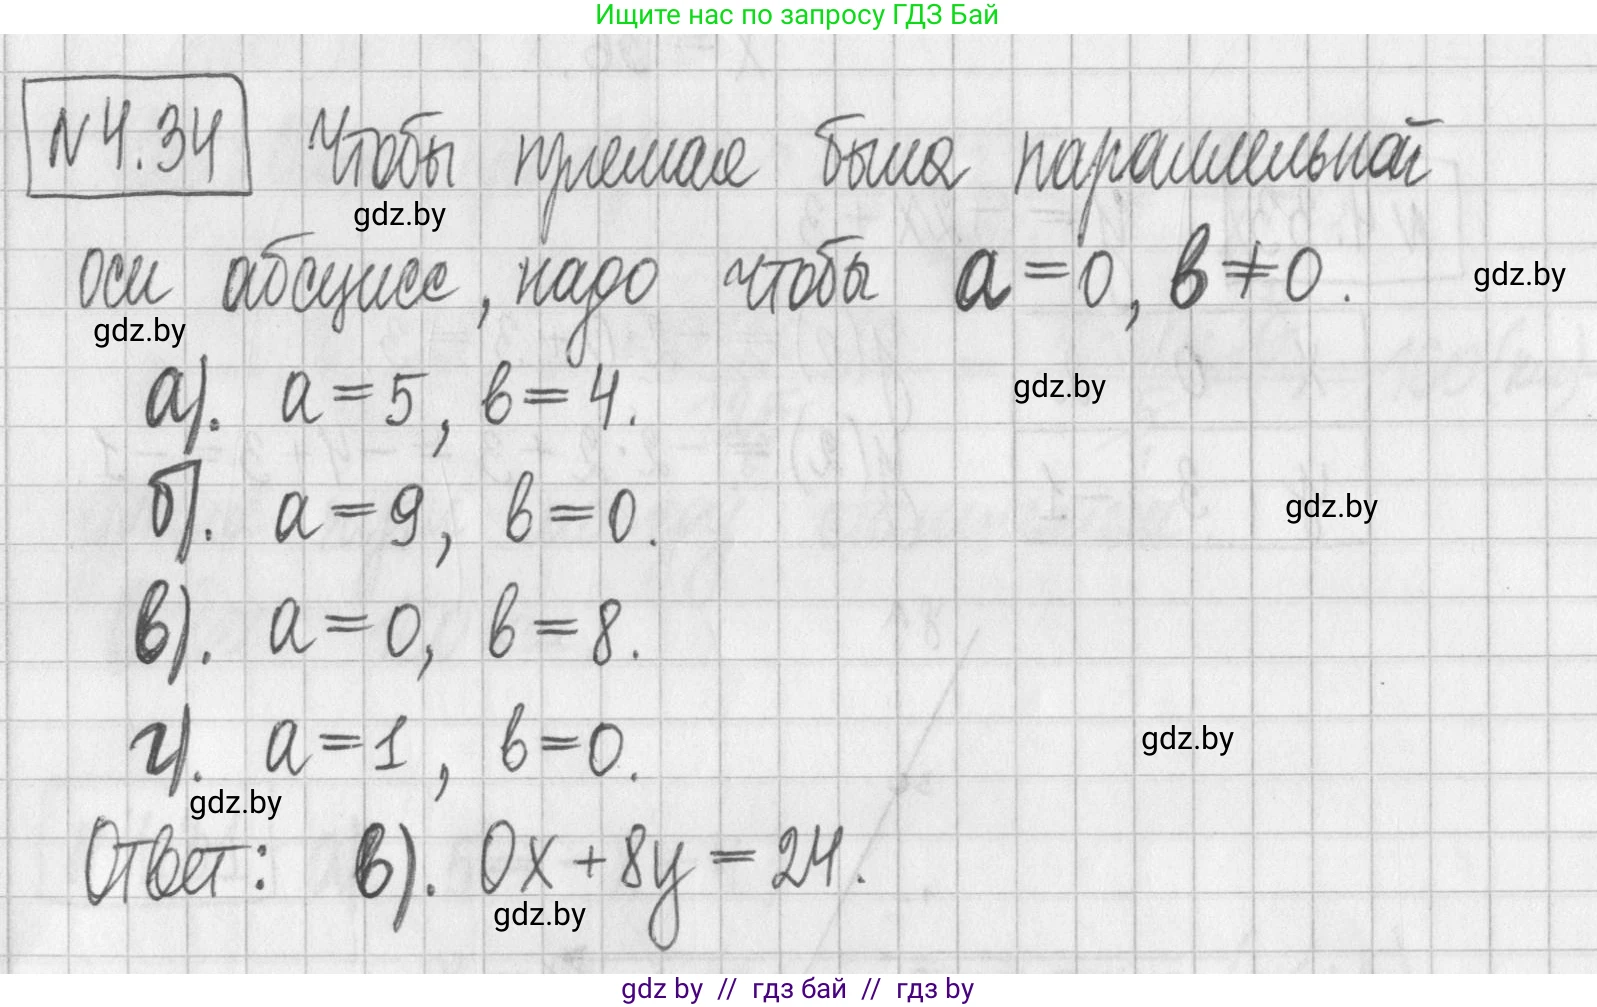 Ищите нас по запросу ГДЗ Бай
N4.34 Чтобы прямая была параллельной
gdz.by
оси абсцисс, надо чтобы a=0, b≠0.
gdz.by
gdz.by
а). a=5, b=4.
gdz.by
б). a=9, b=0.
gdz.by
в). a=0, b=8.
г). a=1, b=0.
gdz.by
gdz.by
Ответ: в). 0x+8y=24.
gdz.by
gdz by // гдз бай // гдз by